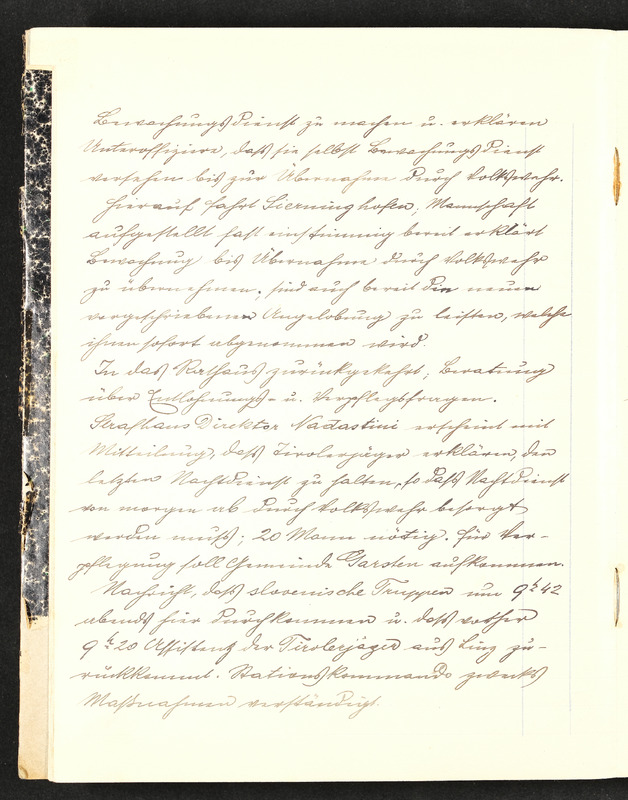 Bewachungsdienst zu machen u. erklären
Unteroffiziere, daß sie selbst Bewachungsdienst
versehen bis zur Übernahme durch Volkswehr.
Hierauf Fahrt Sierninghofen; Mannschaft
aufgestellt fast einstimmig bereit erklärt
Bewachung bis Übernahme durch Volkswehr
zu übernehmen; sind auch bereit den neuen
vorgeschriebenen Angelobung zu leisten, welche
ihnen sofort abgenommen wird.
In das Rathaus zurückgekehrt; Beratung
über Entlohnungs- u. Verpflegsfragen.
Strafhaus Direktor Nadastini erscheint mit
Mitteilung, daß Tirolerjäger erklären, den
letzten Nachtdienst zu halten, so daß Nachtdienst
von morgen ab durch Volkswehr besorgt
werden muß; 20 Mann nötig. Für Ver-
pflegung soll Gemeinde Garsten aufkommen.
Nachricht, daß slovenische Truppen um 9h 42
abends hier durchkommen u. daß vorher
9h 20 Assistenz der Tirolerjäger aus Linz zu-
rückkommt. Stationskommando zwecks
Maßnahmen verständigt.